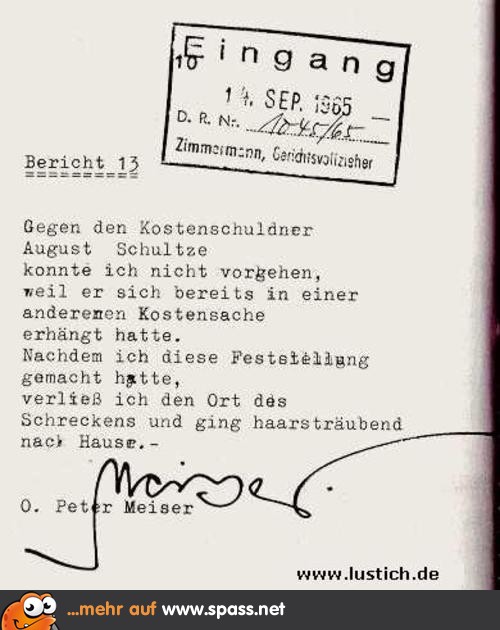 Eingang
10
14. SEP. 1965
D. R. Nr. 1045/65
Zimmermann, Gerichtsvollzieher
Bericht 13
Gegen den Kostenschuldner
August Schultze
konnte ich nicht vorgehen,
weil er sich bereits in einer
anderenen Kostensache
erhängt hatte.
Nachdem ich diese Feststellung
gemacht hatte,
verließ ich den Ort des
Schreckens und ging haarsträubend
nach Hause.-
Meiser
O. Peter Meiser
www.lustich.de
...mehr auf www.spass.net